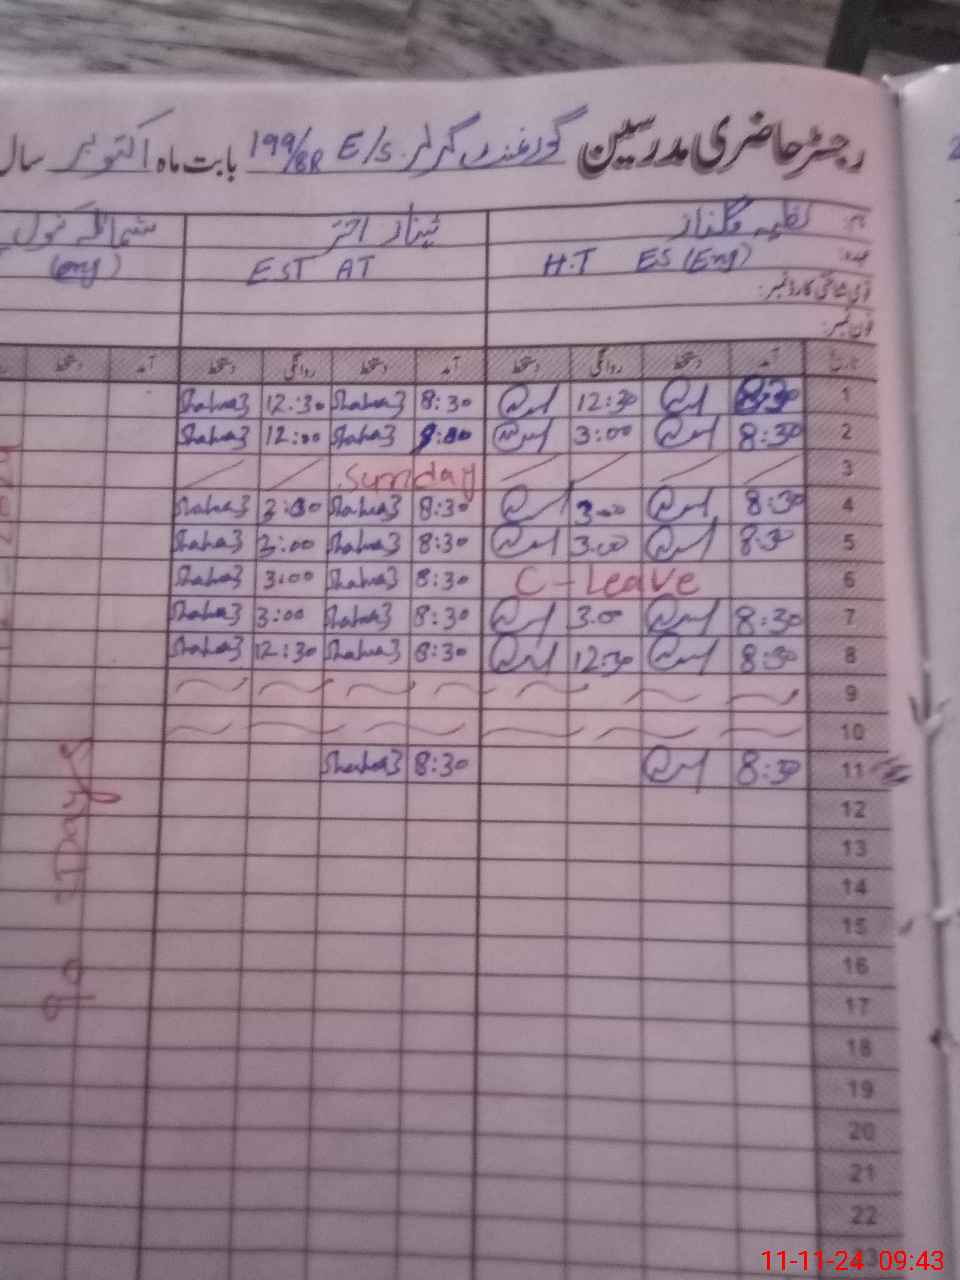 رجسٹر حاضری مدرسین گورنمنٹ گرلز E/S 199/8R بابت ماہ اکتوبر سال
نام:
عہدہ: H.T ES (Eng) EST AT (eng)
قومی شناختی کارڈ نمبر:
فون نمبر:
تاریخ آمد دستخط روانگی دستخط آمد دستخط روانگی دستخط آمد دستخط
1 8:30 12:30 8:30 Shahnaz 12:30 Shahnaz
2 8:30 3:00 8:00 Shahnaz 12:00 Shahnaz
3 Sunday
4 8:30 3:00 8:30 Shahnaz 3:00 Shahnaz
5 8:30 3:00 8:30 Shahnaz 3:00 Shahnaz
6 C-Leave 8:30 Shahnaz 3:00 Shahnaz
7 8:30 3:00 8:30 Shahnaz 3:00 Shahnaz
8 8:30 12:30 8:30 Shahnaz 12:30 Shahnaz
9
10
11 8:30 8:30 Shahnaz
12
13
14
15
16
17
18
19
20
21
22
90 Days
11-11-24 09:43